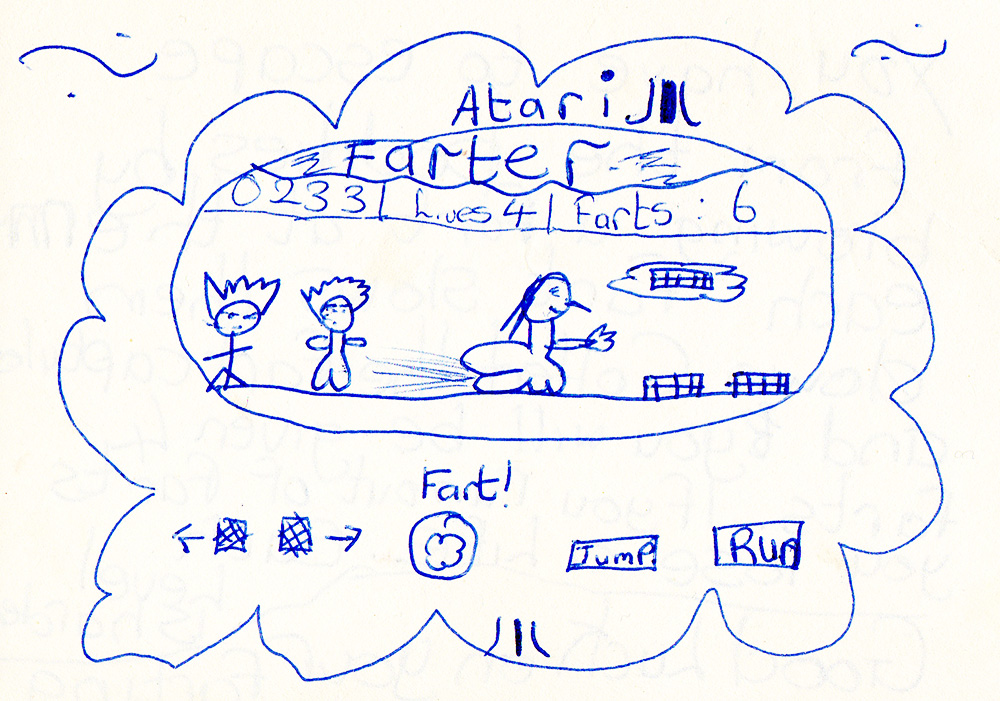 Atari
Farter
0233 | Lives 4 | Farts : 6
Fart!
Jump
Run